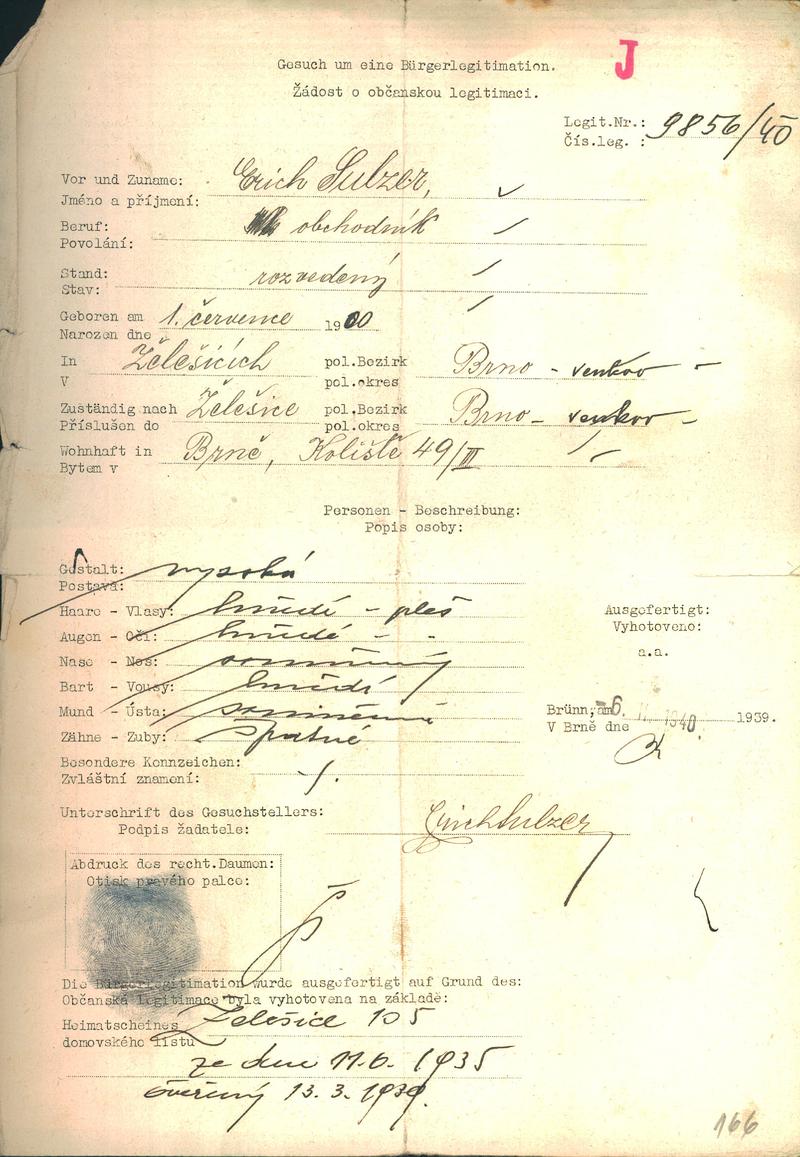 J
Gesuch um eine Bürgerlegitimation.
Žádost o občanskou legitimaci.
Legit.Nr.: 9856/40
Čís.leg. :
Vor und Zuname: Erich Sulzer,
Jméno a příjmení:
Beruf: obchodník
Povolání:
Stand: rozvedený
Stav:
Geboren am 1. července 1900
Narozen dne
In Želešicích pol.Bezirk Brno - venkov
V pol.okres
Zuständig nach Želešice pol.Bezirk Brno - venkov
Příslušen do pol.okres
Wohnhaft in Brně, Koliště 49/III
Bytem v
Personen - Beschreibung:
Popis osoby:
Gestalt: vysoká
Postava:
Haare - Vlasy: hnědé - pleš
Augen - Oči: hnědé
Nase - Nos: souměrný
Bart - Vousy: hnědé
Mund - Ústa: souměrná
Zähne - Zuby: špatné
Ausgefertigt:
Vyhotoveno:
a.a.
Brünn, am 6. 1940 1939.
V Brně dne
Besondere Kennzeichen:
Zvláštní znamení:
Unterschrift des Gesuchstellers: Erich Sulzer
Podpis žadatele:
Abdruck des recht.Daumen:
Otisk pravého palce:
Die Bürgerlegitimation wurde ausgefertigt auf Grund des:
Občanská legitimace byla vyhotovena na základě:
Heimatscheines Želešice 105
domovského listu
ze dne 11.6. 1935
ověřený 13.3. 1939.
166